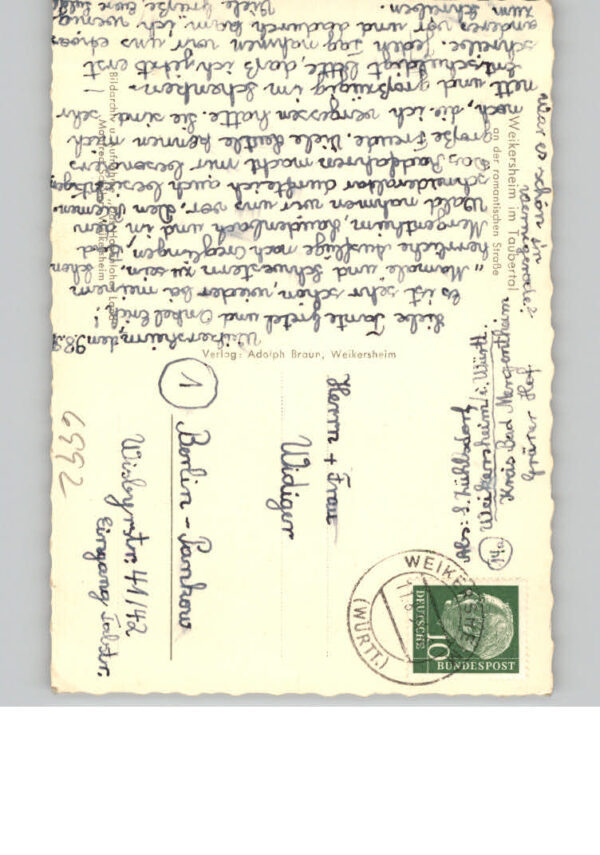 Weikersheim, den 9.8.
Liebe Tante Gretel und Onkel Erich!
Es ist sehr schön, wieder bei meinem
"Mamale" und Schwestern zu sein.
herrliche Ausflüge nach Creglingen, Bad
Mergentheim, Laudenbach und in den
Wald nahmen wir uns vor. Den
schneideraltar auch
Das Radfahren macht mir besonders
große Freude. Viele Leutle kennen mich
noch, die ich vergessen hatte. Sie sind sehr
nett und großzügig im Schenken. –
Entschuldigt bitte, daß ich jetzt erst
schreibe. Jeden Tag nahmen wir uns etwas
anderes vor und dadurch kam ich wenig
zum Schreiben. Viele Grüße Eure
War es schön in
Wernigerode?
Weikersheim im Taubertal
an der romantischen Straße
Verlag: Adolph Braun, Weikersheim
1
Herrn + Frau
Widiger
Berlin - Pankow
Wisbyerstr. 41/42
Eingang Talstr.
6992
Abs: S. Zühlsdorf
(14a) Weikersheim/i. Württ.
Kreis Bad Mergentheim
Grüner Hof
WEIKERSHEIM
(WÜRTT.)
DEUTSCHE
BUNDESPOST
10